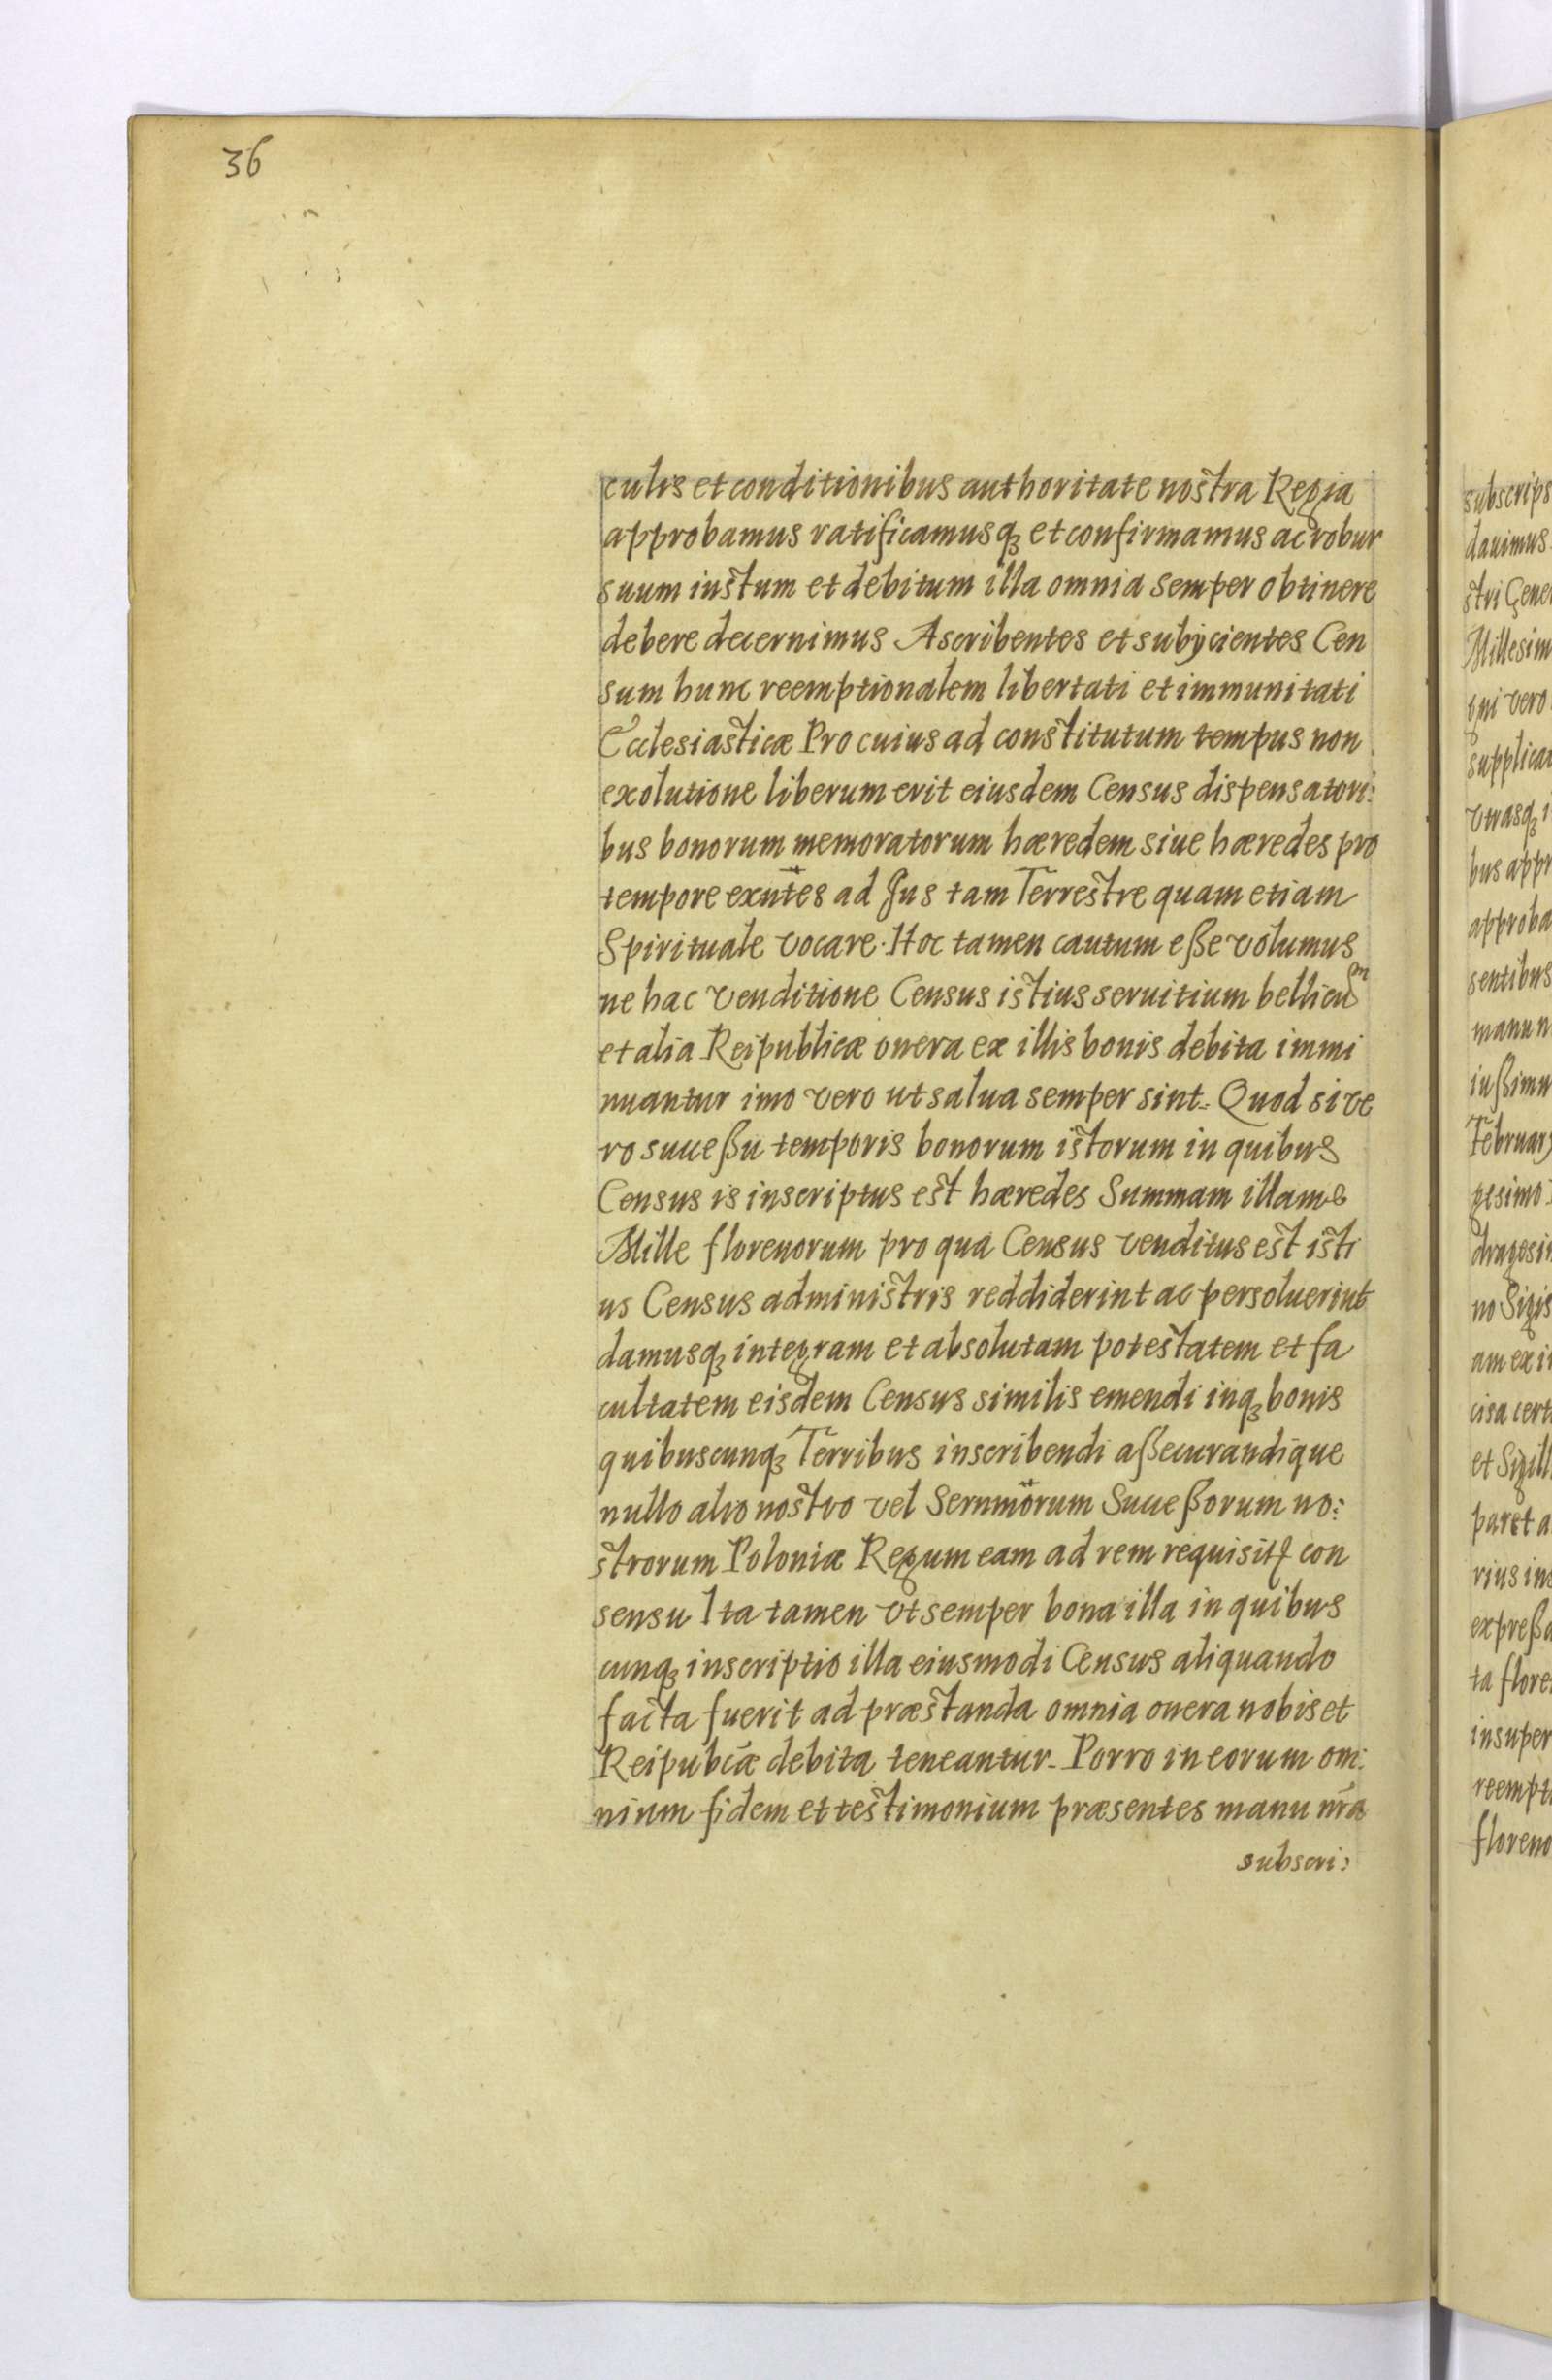 36
culis et conditionibus authoritate nostra Regia
approbamus ratificamusq₃ et confirmamus ac robur
suum iustum et debitum illa omnia semper obtinere
debere decernimus Ascribentes et subÿcientes Cen
sum hunc reemptionalem libertati et immunitati
Ecclesiasticæ Pro cuius ad constitutum tempus non
exolutione liberum erit eiusdem Census dispensatori:
bus bonorum memoratorum hæredem siue hæredes pro
tempore exñtes ad Jus tam Terrestre quam etiam
Spirituale vocare. Hoc tamen cautum eße volumus
ne hac venditione Census istius seruitium bellicũ
et alia Reipublicæ onera ex illis bonis debita immi
nuantur imo vero ut salua semper sint. Quod si ve
ro succeßu temporis bonorum istorum in quibus
Census is inscriptus est hæredes Summam illam
Mille florenorum pro qua Census venditus est isti
us Census administris reddiderint ac persoluerint
damusq₃ integram et absolutam potestatem et fa
cultatem eisdem Census similis emendi inq₃ bonis
quibuscunq₃ Terribus inscribendi aßecurandique
nullo alio nostro vel Sernmõrum Succeßorum no:
strorum Poloniæ Regum eam ad rem requisitꝭ con
sensu Ita tamen vt semper bona illa in quibus
cunq₃ inscriptio illa eiusmodi Census aliquando
facta fuerit ad præstanda omnia onera nobis et
Reipubcæ̃ debita teneantur. Porro in eorum om:
nium fidem et testimonium præsentes manu nrã
subscri:
subscrips
dauimus
stri Gene
Millesim
gni vero
supplica
vtrasq₃ i
bus appr
approba
sentibus
manu n
iußimu
Februarÿ
gesimo
dragesi
no Sigis
am ex i
cisa cert
et Sigill
paret a
rius ins
expreßa
ta flore
insuper
reempt
floreno